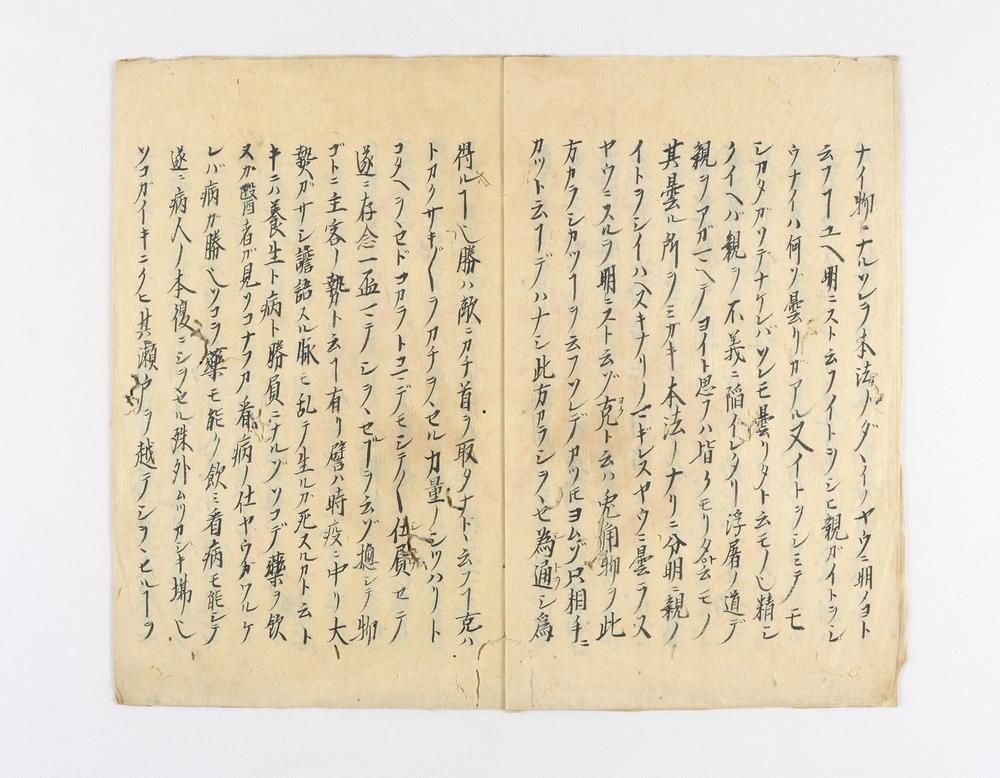 ナイ物ニナルソレヲ本法ノダヽイソヤウニ明ノヨト
云フヿユヘ明ニスト云フイトヲシヒ親ガイトヲシ
ウナイハ何ゾ曇リガアル又イトヲシミテモ
シカタガワデナケレバソレモ曇リタト云モノ乄精シ
クイヘバ親ヲ不義ニ陥イレタリ浮屠ノ道デ
親ヲアガマヘテヨイト思フハ皆クモリタト云モノ
其曇ル所ヲミガキ本法ノナリニ分明ニ親ノ
イトヲシイハヘスキナリノマギレヌヤウニ曇ラヌ
ヤウニスルヲ明ニスト云ゾ克ト云ハ兎角物ヲ此
方カラシカツヿヲ云フソレデカツ𪜈ヨムゾ只相手ニ
カツト云ヿデハナシ此方カラシヲヽセ為通シ為
得ルヿ乄勝ハ敵ニカチ首ヲ取タナドヽ云フヿ克ハ
トカクサキ〴〵ヲカチヲヽセル力量ノシツハリト
コタヘヲヽセドコカラトコマデモシテノ仕負セテ
遂ニ存念一盃マテシヲヽセルヿヲ云ゾ揔シテ物
ゴトニ主客ノ勢ト云フ有リ譬ハ時疫ニ中リ大
熱ガサシ譫語スル脈モ乱テ生ルカ死スルカト云ト
キニハ養生ト病ト勝負ニナルゾソコデ薬ヲ飲
ヌカ醫者ガ見ソコナフカ看病ノ仕ヤウガワルケ
レバ病ガ勝乄ソコヲ藥モ能ク飲ミ看病モ能シテ
遂ニ病人ノ本復ニシヲヽセル殊外ムツカシキ場乄
ソコガイキニクヒ其瀬戸ヲ越テシヲヽセルヿヲ